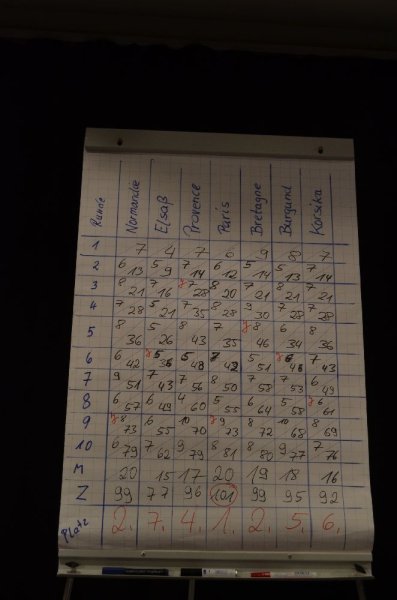 Runde Normandie Elsaß Provence Paris Bretagne Burgund Korsika
1 7 4 7 6 9 8 7
2 6/13 5/9 7/14 6/12 5/14 5/13 7/14
3 8/21 7/16 J 7/28 8/20 7/21 8/21 7/21
4 7/28 5/21 7/35 8/28 9/30 7/28 7/28
5 8/36 5/26 8/43 7/35 J 8/46 6/34 8/36
6 6/42 J 5/36 5/48 7/42 5/51 J 6/46 7/43
7 9/51 7/43 7/56 8/50 7/58 7/53 6/49
8 6/57 6/49 4/60 5/55 6/64 5/58 J 6/61
9 J 8/73 6/55 10/70 J 9/73 8/72 10/68 8/69
10 6/79 7/62 9/79 8/81 8/80 9/77 7/76
M 20 15 17 20 19 18 16
Z 99 77 96 101 99 95 92
Platz 2. 7. 4. 1. 2. 5. 6.